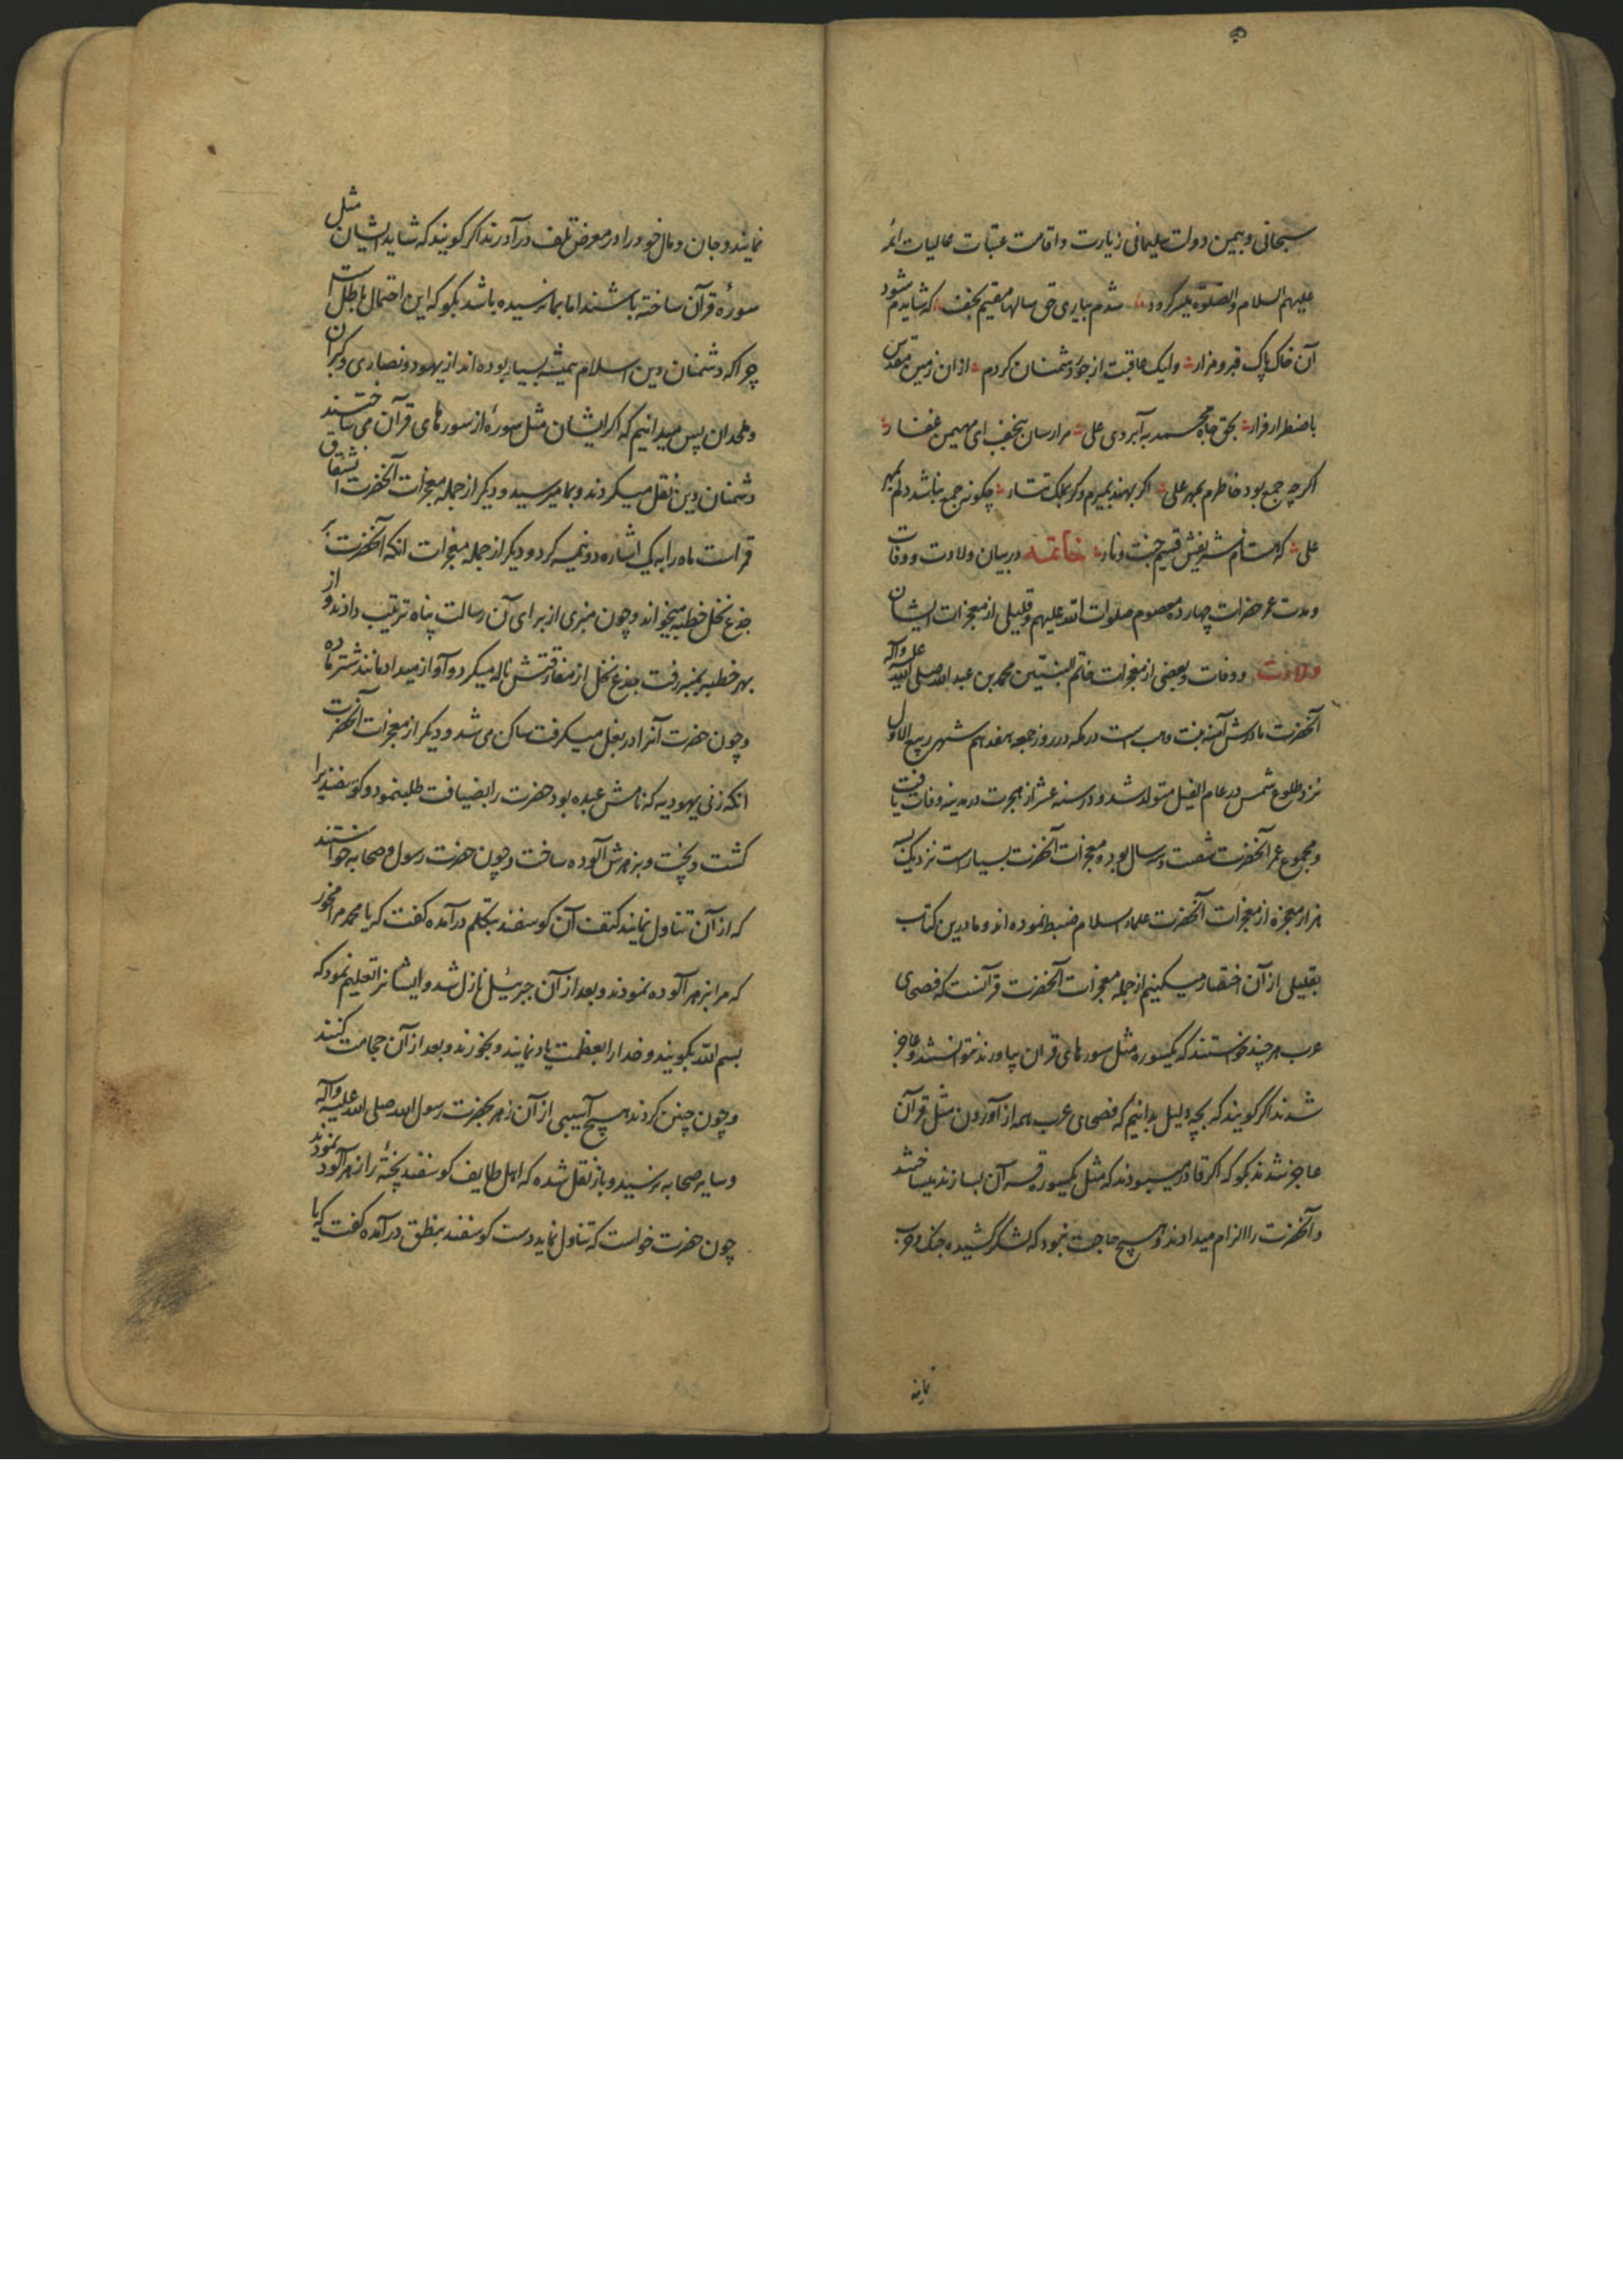 سبحانی و بیمن دولت سلیمانی زیارت و اقامت عتبات عالیات ائمه
علیهم السلام والصلوة میسر کردد شدم بیاری حق سالها مقیم نجف که شاید م شود
آن خاک پاک قبر و مزار ولیک عاقبت از جور دشمنان کردم ازان زمین مقدس
باضطرار فرار بحق جاه محمد به آبروی علی مرا رسان بنجف ای مهیمن غفار
اکر چه جمع بود خاطرم بمهر علی اکر بهند بمیرم وکر بملک تتار چکونه جمع نباشد دلم بمهر
علی که هست نام شریفش قسیم جنت و نار خاتمه در بیان ولادت و وفات
و مدت عمر حضرات چهارده معصوم صلوات الله علیهم و قلیلی از معجزات ایشان
ولادت و وفات و بعضی از معجزات خاتم النبیین محمد بن عبد الله صلی الله علیه وآله
آنحضرت مادرش آمنه بنت وهب است در مکه در روز جمعه هفدهم شهر ربیع الاول
نزد طلوع شمس در عام الفیل متولد شد و در سنه عشر از هجرت در مدینه وفات یافت
و مجموع عمر آنحضرت شصت و سه سال بوده معجزات آنحضرت بسیار است نزدیک بسه
هزار معجزه از معجزات آنحضرت علماء اسلام ضبط نموده اند و ما درین کتاب
بقلیلی از آن اختصار میکنیم از جمله معجزات آنحضرت قرآنست که فصحای
عرب هر چند خواستند که یکسوره مثل سورهای قران بیاورند نتوانستند و عاجز
شدند اکر کویند که بچه دلیل بدانیم که فصحای عرب همه از آوردن مثل قرآن
عاجز شدند بکو که اکر قادر میبودند که مثل یکسوره قرآن بسازند میساختند
و آنحضرت را الزام میدادند و هیچ حاجت نبود که لشکر کشیده جنک و حرب
نمایند
نمایند و جان و مال خود را در معرض تلف درآورند اکر کویند که شاید ایشان مثل
سورهٔ قرآن ساخته باشند اما بما نرسیده باشد بکو که این احتمال باطل است
چرا که دشمنان دین اسلام همیشه بسیار بوده اند از یهود و نصاری و کبران
و ملحدان پس میدانیم که اکر ایشان مثل سورهٔ از سورهای قرآن می ساختند
دشمنان دین نقل میکردند و بما میرسید و دیکر از جمله معجزات آنحضرت انشقاق
قمر است ماه را به یک اشاره دو نیمه کرد و دیکر از جمله معجزات آنکه آنحضرت بر
جذع نخل خطبه میخواند و چون منبری از برای آن رسالت پناه ترتیب دادند و از
بهر خطبه بمنبر رفت جذع نخل از مفارقتش ناله میکرد و آواز میداد مانند شتر ماده
و چون حضرت آنرا در بغل میکرفت ساکن می شد و دیکر از معجزات آنحضرت
انکه زنی یهودیه که نامش عبده بود حضرت را بضیافت طلب نمود و کوسفندیرا
کشت و پخت و بزهرش آلوده ساخت و چون حضرت رسول و صحابه خواستند
که از آن تناول نمایند کتف آن کوسفند بتکلم در آمده کفت که یا محمد مرا مخور
که مرا بزهر آلوده نمودند و بعد از آن جبرئیل نازل شد و ایشانرا تعلیم نمود که
بسم الله بکویند و خدا را بعظمت یاد نمایند و بخورند و بعد از آن حجامت کنند
و چون چنین کردند هیچ آسیبی از آن زهر بحضرت رسول الله صلی الله علیه وآله
و سایر صحابه نرسید و باز نقل شده که اهل طایف کوسفند پختهٔ را زهرآلود نمودند
چون حضرت خواست که تناول نماید دست کوسفند بنطق در آمده کفت که یا